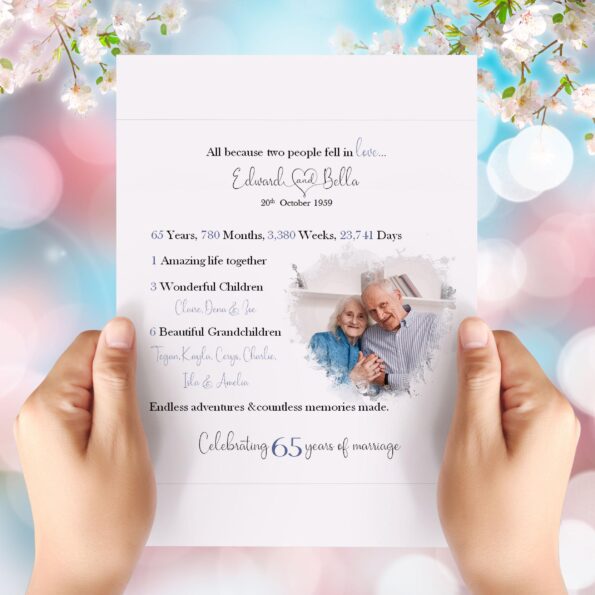 All because two people fell in love...
Edward and Bella
20th October 1959
65 Years, 780 Months, 3,380 Weeks, 23,741 Days
1 Amazing life together
3 Wonderful Children
Claire, Dena & Joe
6 Beautiful Grandchildren
Tegan, Kayla, Cerys, Charlie,
Isla & Amelia
Endless adventures &countless memories made.
Celebrating 65 years of marriage